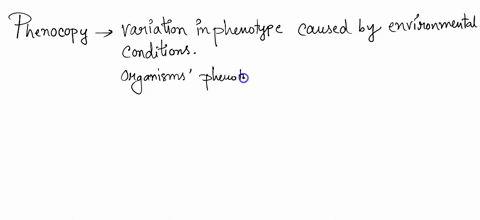 Phenocopy → variation in phenotype caused by environmental
conditions.
Organisms' phenot